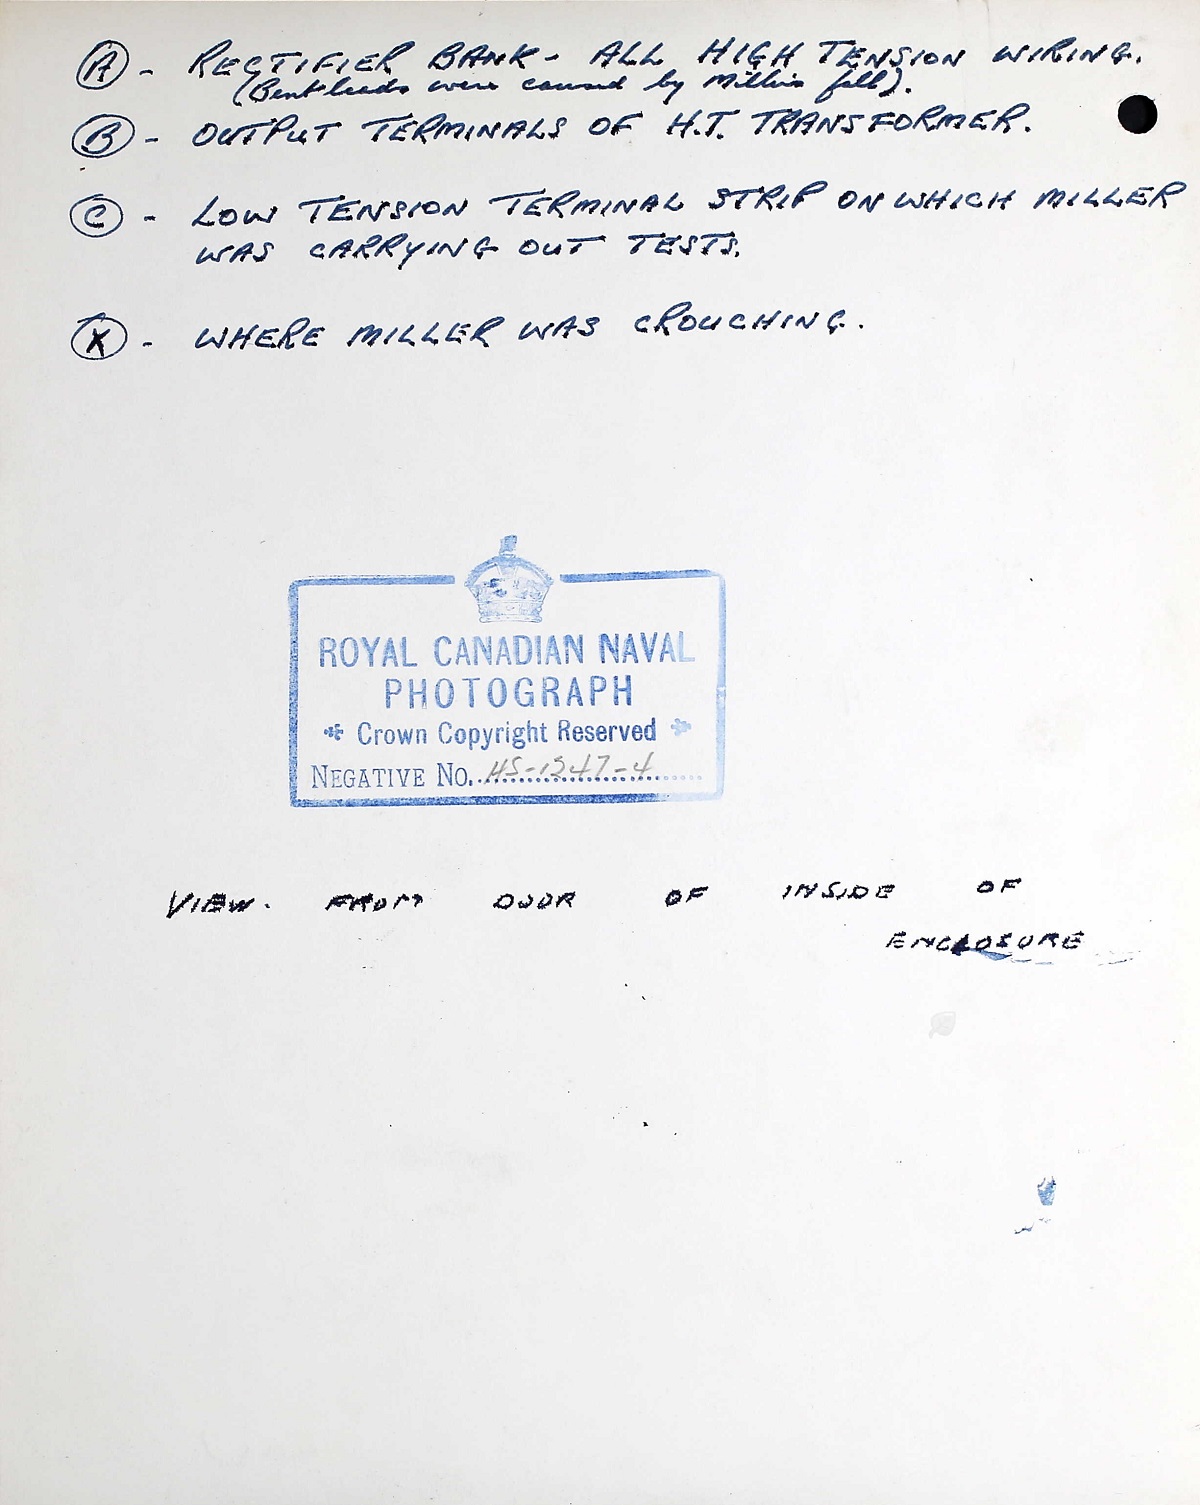 A - RECTIFIER BANK - ALL HIGH TENSION WIRING.
(Bent leads were caused by Miller's fall).
B - OUTPUT TERMINALS OF H.T. TRANSFORMER.
C - LOW TENSION TERMINAL STRIP ON WHICH MILLER
WAS CARRYING OUT TESTS.
X - WHERE MILLER WAS CROUCHING.
ROYAL CANADIAN NAVAL
PHOTOGRAPH
Crown Copyright Reserved
NEGATIVE No. HS-1347-4
VIEW. FROM DOOR OF INSIDE OF
ENCLOSURE